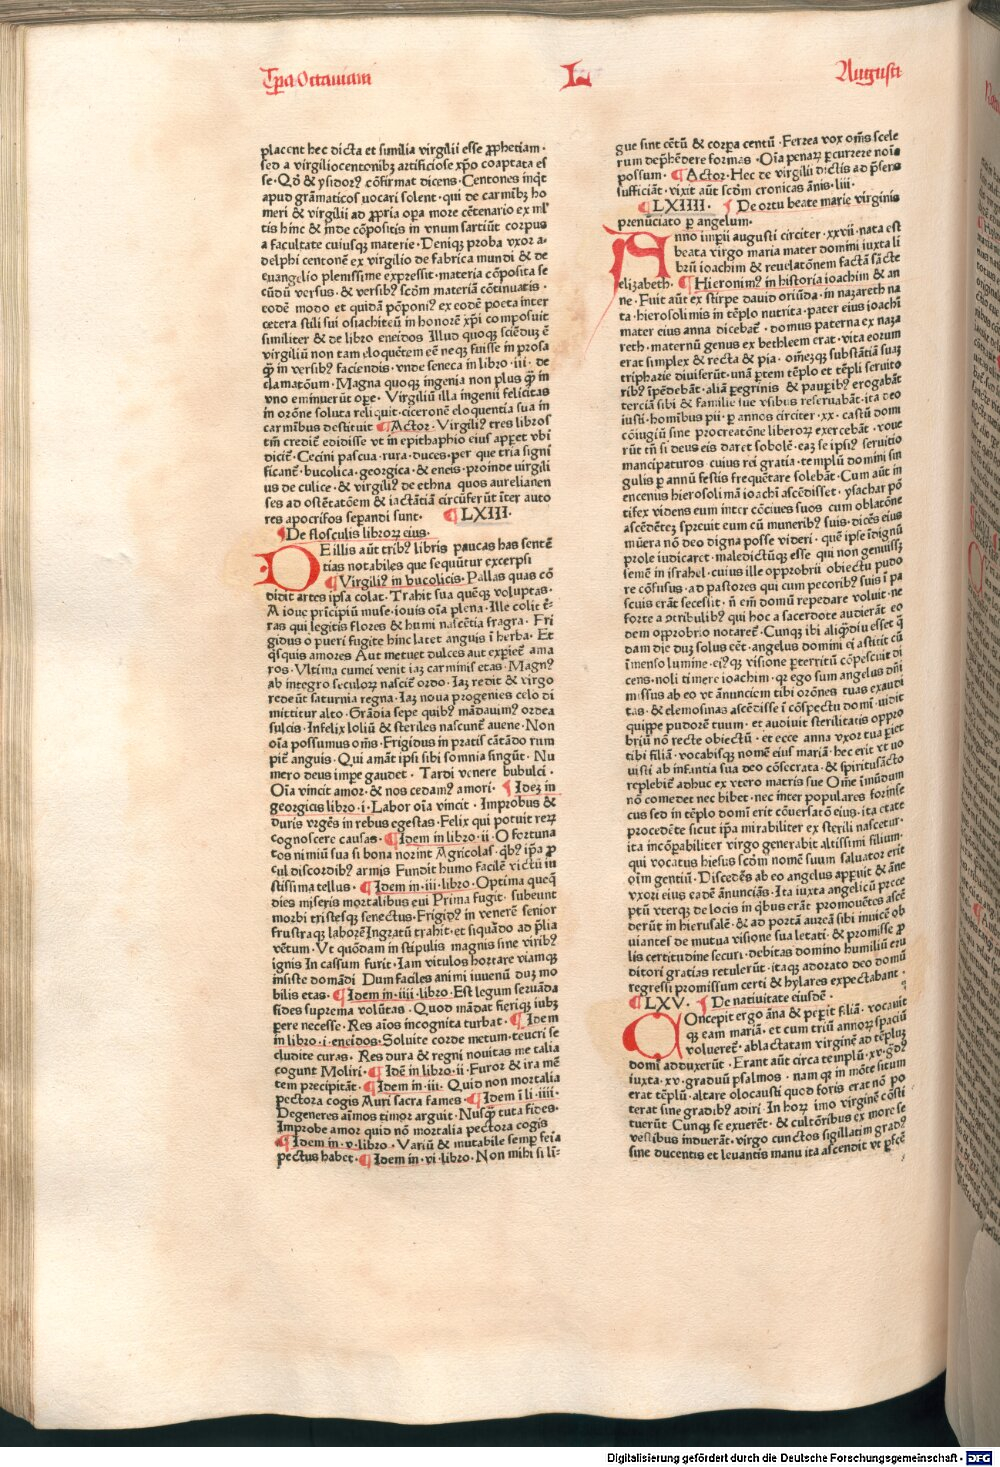 Tp̄a Octauiani
L
Augusti
placent hec dicta et similia virgilii esse ꝓphetiam·
sed a virgiliocentonibꝫ artificiose xp̄o coaptata es
se·Qđ & ysidorꝰ cōfirmat dicens·Centones inq̄t
apud grāmaticos uocari solent·qui de carmībꝫ ho
meri & virgilii ad ꝓpria oꝑa more cētenario ex ml̄
tis hinc & īnde cōpositis in vnum sartiūt corpus
a facultate cuiusqꝫ materie·Deniqꝫ proba vxor a⸗
delphi centonē ex virgilio de fabrica mundi & de
euangelio plenissime expressit·materia cōposita se
cūdū versus·& versibꝰ scd̄m materiā cōtinuatis·
codē modo et quidā pōponiꝰ ex eodē poeta inter
cetera stili sui ociachiteū in honorē xp̄i composuit
similiter & de libro eneidos Illud quoqꝫ sciēduꝫ ē
virgiliū non tam eloquētem eē neqꝫ fuisse in prosa
q̄ꝫ in versibꝰ faciendis·vnde seneca in libro·iii·de
clamatōum·Magna quoqꝫ ingenia non plus q̄ꝫ in
vno eminuerūt oꝑe·Virgiliū illa ingenii felicitas
in orōne soluta reliquit·ciceronē eloquentia sua in
carmībus destituit ¶Actor·Virgiliꝰ tres libros
tm̄ credit̄ edidisse vt in epithaphio eius apꝑet vbi
dicit̄·Cecini pascua·rura·duces·per que tria signi
ficant̄·bucolica·georgica·& eneis·proinde uirgili
us de culice·& virgiliꝰ de ethna quos aurelianen
ses ad ostētatōem & iactātiā circūferūt īter auto
res apocrifos seꝑandi sunt·  ¶LXIII·
¶De flosculis libroꝝ eius·
DE illis aūt tribꝰ libris paucas has sentē
tias notabiles que sequūtur excerpsi
¶Virgiliꝰ in bucolicis·Pallas quas cō
didit artes ipsa colat·Trahit sua quēqꝫ voluptas·
A ioue prīcipiū muse·iouis oīa plena·Ille colit t̄
ras qui legitis flores & humi nascētia fragra·Fri
gidus o pueri fugite hinc latet anguis ī herba·Et
q̄squis amores Aut metuet dulces aut exꝑiet̄ ama
ros·Vltima cumei venit iaꝫ carminis etas·Magnꝰ
ab integro seculoꝝ nascit̄ ordo·Iaꝫ redit & virgo
redeūt saturnia regna·Iaꝫ noua progenies celo di
mittitur alto·Grādia sepe quibꝰ mādauimꝰ ordea
sulcis·Infelix loliū & steriles nascunt̄ auene·Non
oīa possumus om̄s·Frigidus in pratis cātādo rum
pit̄ anguis·Qui amāt ipsi sibi somnia fingūt·Nu
mero deus impe gaudet·Tardi venere bubulci·
Oīa vincit amor·& nos cedamꝰ amori·¶Ideꝫ in
georgicis libro·i·Labor oīa vincit·Improbus &
duris vrgēs in rebus egestas·Felix qui potuit reꝝ
cognoscere causas·¶Idem in libro·ii·O fortuna
tos nimiū sua si bona norint Agricolas·q̄bꝰ ip̄a ꝓ
cul discordibꝰ armis Fundit humo facilē victū iu
stissima tellus·¶Idem in·iii·libro·Optima queqꝫ
dies miseris mortalibus eui Prima fugit·subeunt
morbi tristesqꝫ senectus·Frigidꝰ in venerē senior
frustraqꝫ laborē Ingratū trahit·et siquādo ad ꝓlia
vētum·Vt quōdam in stipulis magnis sine viribꝰ
ignis In cassum furit·Iam vitulos hortare viamqꝫ
insiste domādi Dum faciles animi iuuenū duꝫ mo
bilis etas·¶Idem in·iiii·libro·Est legum seruāda
fides suprema volūtas·Quod mādat fieriqꝫ iubꝫ
ꝑere necesse·Res aīos incognita turbat·¶Idem
in libro·i·eneidos·Soluite corde metum·teucri se
cludite curas·Res dura & regni nouitas me talia
cogunt Moliri·¶Idē in libro·ii·Furor & ira mē
tem precipitāt·¶Idem in·iii·Quid non mortalia
pectora cogis Auri sacra fames·¶Idem ī li·iiii·
Degeneres aīmos timor arguit·Nusq̄ tuta fides·
Improbe amor quid nō mortalia pectora cogis
¶Idem in·v·libro·Variū & mutabile semꝑ feīa
pectus habet·¶Idem in·vi·libro·Non mihi si lī⸗
gue sint cētū & corꝑa centū·Ferrea vox om̄s scele
rum dep̄hēdere formas·Oīa penaꝝ ꝑcurrere noīa
possum·¶Actor·Hec de virgilii dictis ad p̄sens
sufficiāt·vixit aūt scd̄m cronicas ānis·liii·
¶LXIIII·  ¶De ortu beate marie virginis
prenūciato ꝑ angelum·
ANno imp̄ii augusti circiter·xxvii·nata est
beata virgo maria mater domini iuxta li
brū ioachim & reuelatōnem factā sācte
elizabeth·¶Hieronimꝰ in historia ioachim & an
ne·Fuit aūt ex stirpe dauid oriūda·in nazareth na
ta·hierosolimis in tēplo nutrita·pater eius ioachī
mater eius anna dicebat̄·domus paterna ex naza
reth·maternū genus ex bethleem erat·vita eorum
erat simplex & recta & pia·om̄eqꝫ substātiā suaꝫ
tripharie diuiserūt·unā ꝑtem tēplo et tēpli seruito
ribꝰ īpēdebāt·aliā ꝑegrinis & pauꝑibꝰ erogabāt
terciā sibi & familie sue vsibus reseruabāt·ita deo
iusti·homībus pii·ꝑ annos circiter·xx·castū domi
cōiugiū sine procreatōne liberoꝝ exercebāt·voue
rūt tn̄ si deus eis daret sobolē·eaꝫ se ipsiꝰ seruitio
mancipaturos·cuius rei gratia·templū domini sin
gulis ꝑ annū festis frequētare solebāt·Cum aūt in
encenius hierosolimā ioachī ascēdisset·ysachar pō
tifex videns eum inter cōciues suos cum oblatōne
ascēdētēꝫ spreuit eum cū muneribꝰ suis·dicēs eius
mūera nō deo digna posse videri·quē ipse īdignū
prole iudicaret·maledictūqꝫ esse qui non genuissꝫ
semē in israhel·cuius ille opprobrii obiectu pudo
re cōfusus·ad pastores qui cum pecoribꝰ suis ī pa
scuis erāt secessit·n̄ em̄ domū repedare voluit·ne
forte a ꝯtribulibꝰ qui hoc a sacerdote audierāt eo
dem opprobrio notaret̄·Cunqꝫ ibi aliq̄diu esset q̄
dam die duꝫ solus eēt·angelus domini ei astitit cū
īmenso lumine·eiꝰqꝫ visione ꝑterritū cōpescuit di
cens·noli timere ioachim·qꝛ ego sum angelus dn̄i
missus ab eo vt ānunciem tibi orōnes tuas exaudi
tas·& elemosinas ascēdisse ī cōspectu domī·uidit
quippe pudorē tuum·et audiuit sterilitatis oppro
briū nō recte obiectū·et ecce anna vxor tua ꝑiet
tibi filiā·vocabisqꝫ nomē eius mariā·hec erit vt uo
uisti ab infantia sua deo cōsecrata·& spiritusācto
replebit̄ adhuc ex vtero matris sue Om̄e īmūdum
nō comedet nec bibet·nec inter populares forinse
cus sed in tēplo domī erit cōuersatō eius·ita etate
procedēte sicut ip̄a mirabiliter ex sterili nascetur·
ita incōꝑabiliter virgo generabit altissimi filium·
qui vocatus hiesus scd̄m nomē suum saluator erit
oīm gentiū·Discedēs ab eo angelus apꝑuit & āne
vxori eius eadē ānunciās·Ita iuxta angelicū p̄ce
ptū vterqꝫ de locis in q̄bus erāt promouētes ascē
derūt in hierusalē·& ad portā aureā sibi inuicē ob
uiantes de mutua visione sua letati·& promisse ꝓ
lis certitudine securi·debitas domino humiliū exu
ditori gratias retulerūt·itaqꝫ adorato deo domū
regressi promissum certi & hylares expectabant·
¶LXV·¶De natiuitate eiusdē·
COncepit ergo āna & peꝑit filiā·vocauit
qꝫ eam mariā·et cum triū annoꝝ spaciū
volueret̄·ablactatam virginē ad tēpluꝫ
domī adduxerūt·Erant aūt circa templū·xv·gᵃdꝰ
iuxta·xv·graduū psalmos·nam qꝛ in mōte situm
erat tēplū·altare olocausti quod foris erat nō po
terat sine gradibꝰ adiri·In hoꝝ imo virginē cōsti
tuerūt Cunqꝫ se exueret̄·& cultōribus ex more se
vestibus induerāt·virgo cunctos sigillatim gradꝰ
sine ducentis et leuantis manu ita ascendit vt ꝑfcē
Digitalisierung gefördert durch die Deutsche Forschungsgemeinschaft - DFG